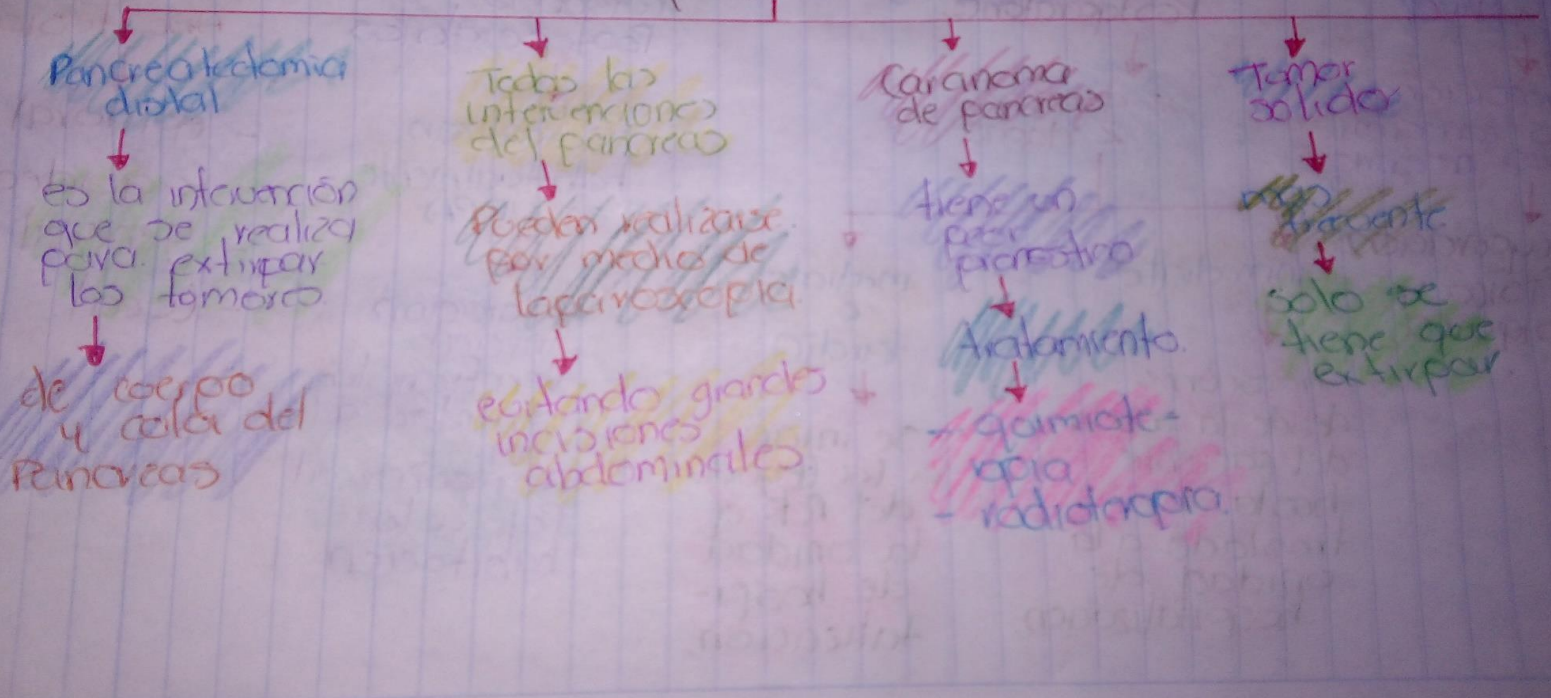 Pancreatectomia
distal
es la intervención
que se realiza
para extirpar
los tumores
de cuerpo
y cola del
Pancreas
Todas las
intervenciones
del pancreas
Pueden realizarse
por medio de
laparoscopia
evitando grandes
incisiones
abdominales
Caranoma
de pancreas
tiene un
peor
pronostico
tratamiento.
- quimiote-
rapia
- radioterapia.
Tumor
solido
frecuente
solo se
tiene que
extirpar